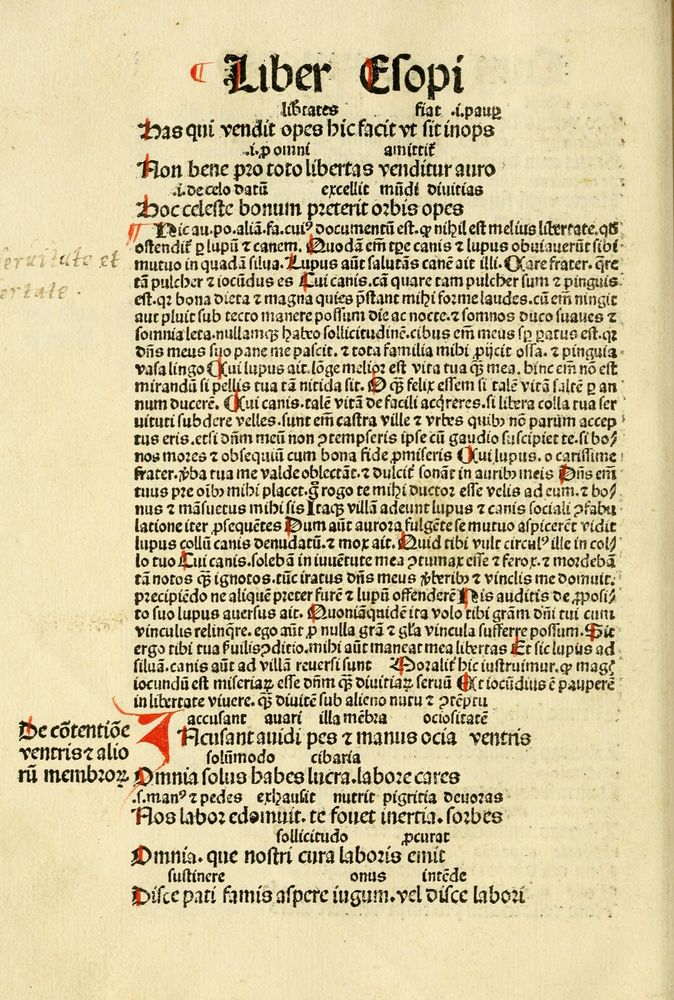 ¶ Liber Esopi
lib̄tates fiat .i.paup̲
Has qui vendit opes hic facit vt sit inops
.i.ꝓ omni amittit̄
Non bene pro toto libertas venditur auro
.i.de celo datū excellit mūdi diuitias
Hoc celeste bonum preterit orbis opes
¶ Hic au.po.aliā.fa.cuiꝰ documentū est.ꝙ nihil est melius libertate.qd̄
ostendit̄ ꝑ lupū ⁊ canem. Quodā em̄ tꝑe canis ⁊ lupus obuiauerūt sibi
mutuo in quadā silua. Lupus aūt salutās canē ait illi. Care frater. q̄re
tā pulcher ⁊ iocūdus es Cui canis. cā quare tam pulcher sum ⁊ pinguis
est.qꝛ bona dieta ⁊ magna quies p̄stant mihi forme laudes.cū em̄ ningit
aut pluit sub tecto manere possum die ac nocte.⁊ somnos duco suaues ⁊
somnia leta.nullamqꝫ habeo sollicitudinē.cibus em̄ meus sꝑ ꝑatus est.qꝛ
dn̄s meus suo pane me pascit.⁊ tota familia mihi ꝓijcit ossa.⁊ pinguia
vasa lingo Cui lupus ait. lōge melior est vita tua qꝫ mea. hinc em̄ non est
mirandū si pellis tua tā nitida sit. O qꝫ felix essem si talē vitā saltē ꝑ an
num ducerē. Cui canis.talē vitā de facili acq̄reres.si libera colla tua ser
uituti subdere velles.sunt em̄ castra ville ⁊ vrbes quibꝰ nō parum accep
tus eris.etsi dn̄m meū non ꝯtempseris ipse cū gaudio suscipiet te.si bo
nos mores ⁊ obsequiū cum bona fide ꝓmiseris Cui lupus. o carissime
frater.v̄ba tua me valde oblectāt.⁊ dulcit̄ sonāt in auribꝰ meis Dn̄s em̄
tuus pre oībꝰ mihi placet.g̊ rogo te mihi ductor esse velis ad eum.⁊ bo
nus ⁊ māsuetus mihi sis Itaqꝫ villā adeunt lupus ⁊ canis sociali ꝯfabu
latione iter ꝓsequētes Dum aūt aurora fulgēte se mutuo aspicerēt vidit
lupus collū canis denudatū.⁊ mox ait. Quid tibi vult circulꝰ ille in col
lo tuo Cui canis.solebā in iuuētute mea ꝯtumax esse ⁊ ferox.⁊ mordebā
tā notos qꝫ ignotos.tūc iratus dn̄s meus v̄beribꝰ ⁊ vinclis me domuit.
precipiēdo ne aliquē preter furē ⁊ lupū offenderē His auditis de ꝓposi
to suo lupus auersus ait. Quoniāquidē ita volo tibi grām dn̄i tui cum
vinculis relinq̄re. ego aūt ꝓ nulla grā ⁊ gl̄a vincula sufferre possum. Sit
ergo tibi tua ẜuilis ꝯditio.mihi aūt maneat mea libertas Et sic lupus ad
siluā.canis aūt ad villā reuersi sunt Moralit̄ hic instruimur.ꝙ mag
iocundū est miseriaꝝ esse dn̄m qꝫ diuitiaꝝ seruū Et iocūdius ē pauperē
in libertate viuere.qꝫ diuitē sub alieno nutu ⁊ ꝯtēptu
accusant auari illa mēbra ociositatē
De cōtentiōe
ventris ⁊ alio
rū membroꝝ
Acusant auidi pes ⁊ manus ocia ventris
solūmodo cibaria
Omnia solus habes lucra.labore cares
.s.manꝰ ⁊ pedes exhausit nutrit pigritia deuoras
Nos labor edomuit. te fouet inertia. sorbes
sollicitudo ꝓcurat
Omnia. que nostri cura laboris emit
sustinere onus intēde
Disce pati famis aspere iugum.vel disce labori